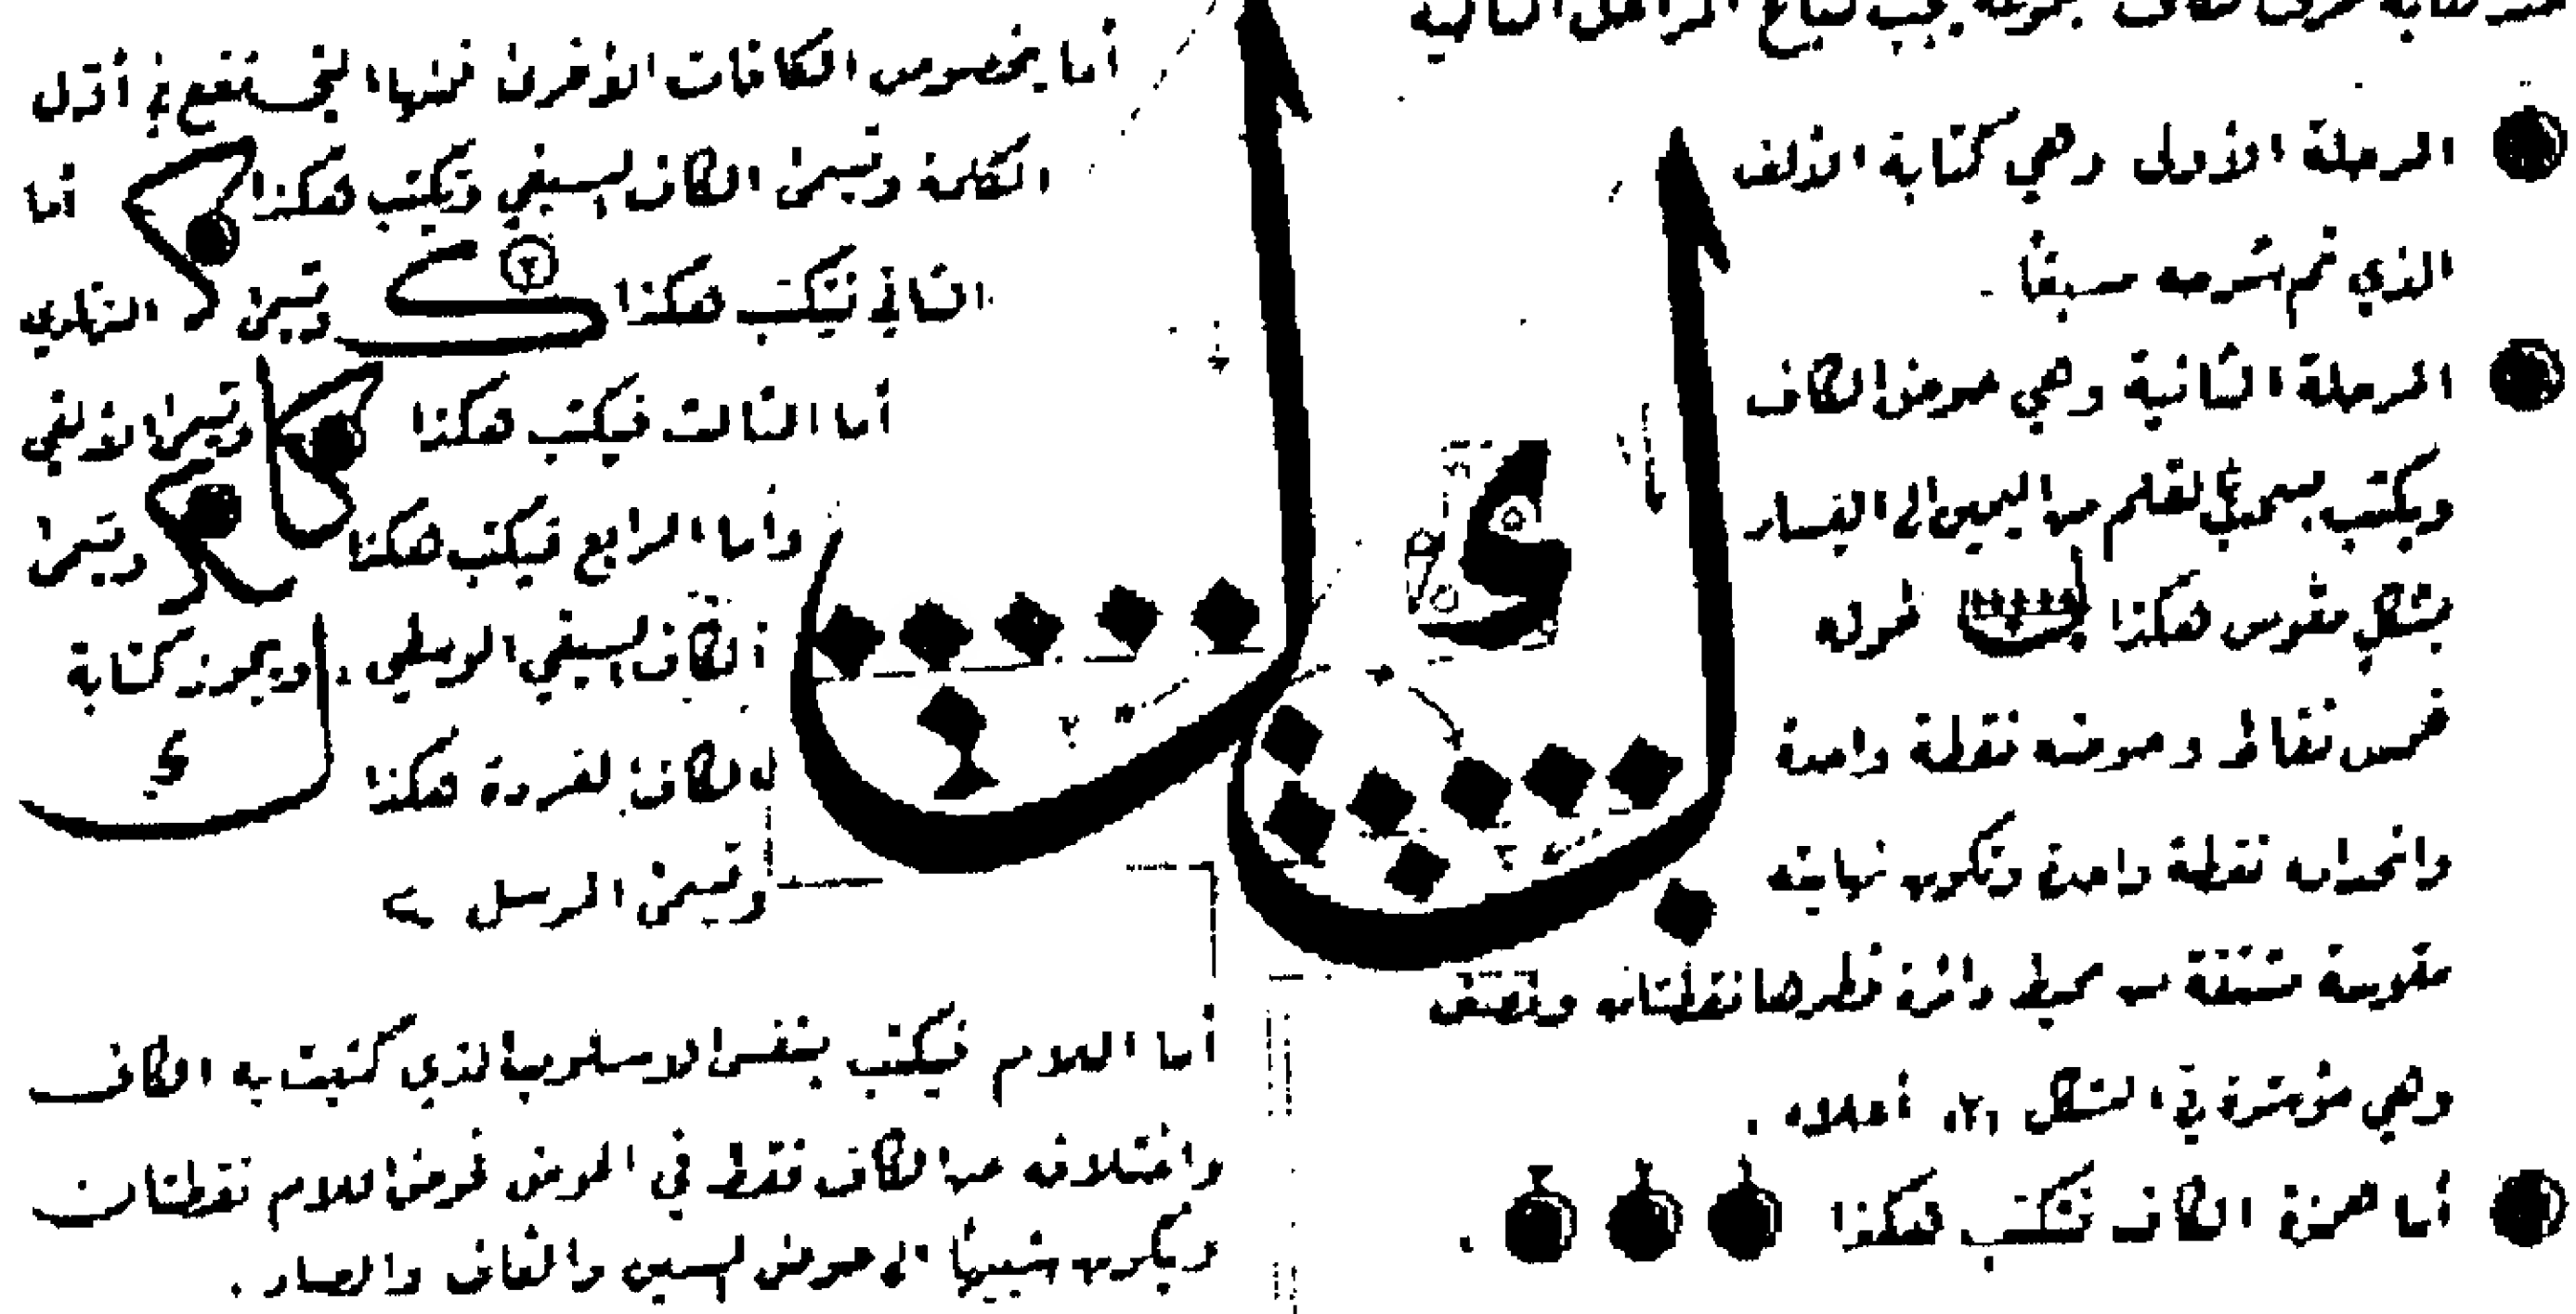 عند كتابة حرف الكاف يجب اتباع المراحل التالية
المرحلة الأولى وهي كتابة الألف
الذي تم شرحه مسبقاً .
المرحلة الثانية وهي حوض الكاف
ويكتب بسحب القلم من اليمين الى اليسار
بشكل مقوس هكذا طوله
خمس نقاط وحوضه نقطة واحدة
وانحداره نقطة واحدة وتكون نهايته
مقوسة مشتقة من محيط دائرة قطرها نقطتان ونصف
وهي مؤشرة في الشكل (٢) أعلاه .
أما همزة الكاف فتكتب هكذا .
أما بخصوص الكافات الأخرى فمنها التي تقع في أول
الكلمة وتسمى الكاف السيفي وتكتب هكذا أما
الثاني فتكتب هكذا وتسمى
أما الثالث فيكتب هكذا وتسمى الألفي
وأما الرابع فيكتب هكذا وتسمى
الكاف السيفي الوسطي ، ويجوز كتابة
الكاف المفردة هكذا
وتسمى المرسل
أما اللام فيكتب بنفس الاسلوب الذي كتبت به الكاف
واختلافه عن الكاف فقط في الحوض فحوض اللام نقطتان
ويكون شبيهاً الى حوض السين والقاف والصاد .